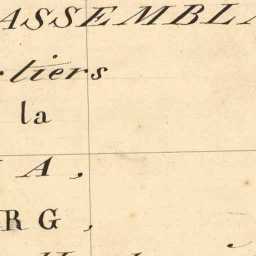 ASSEMBLA
rtiers
la
A,
RG,